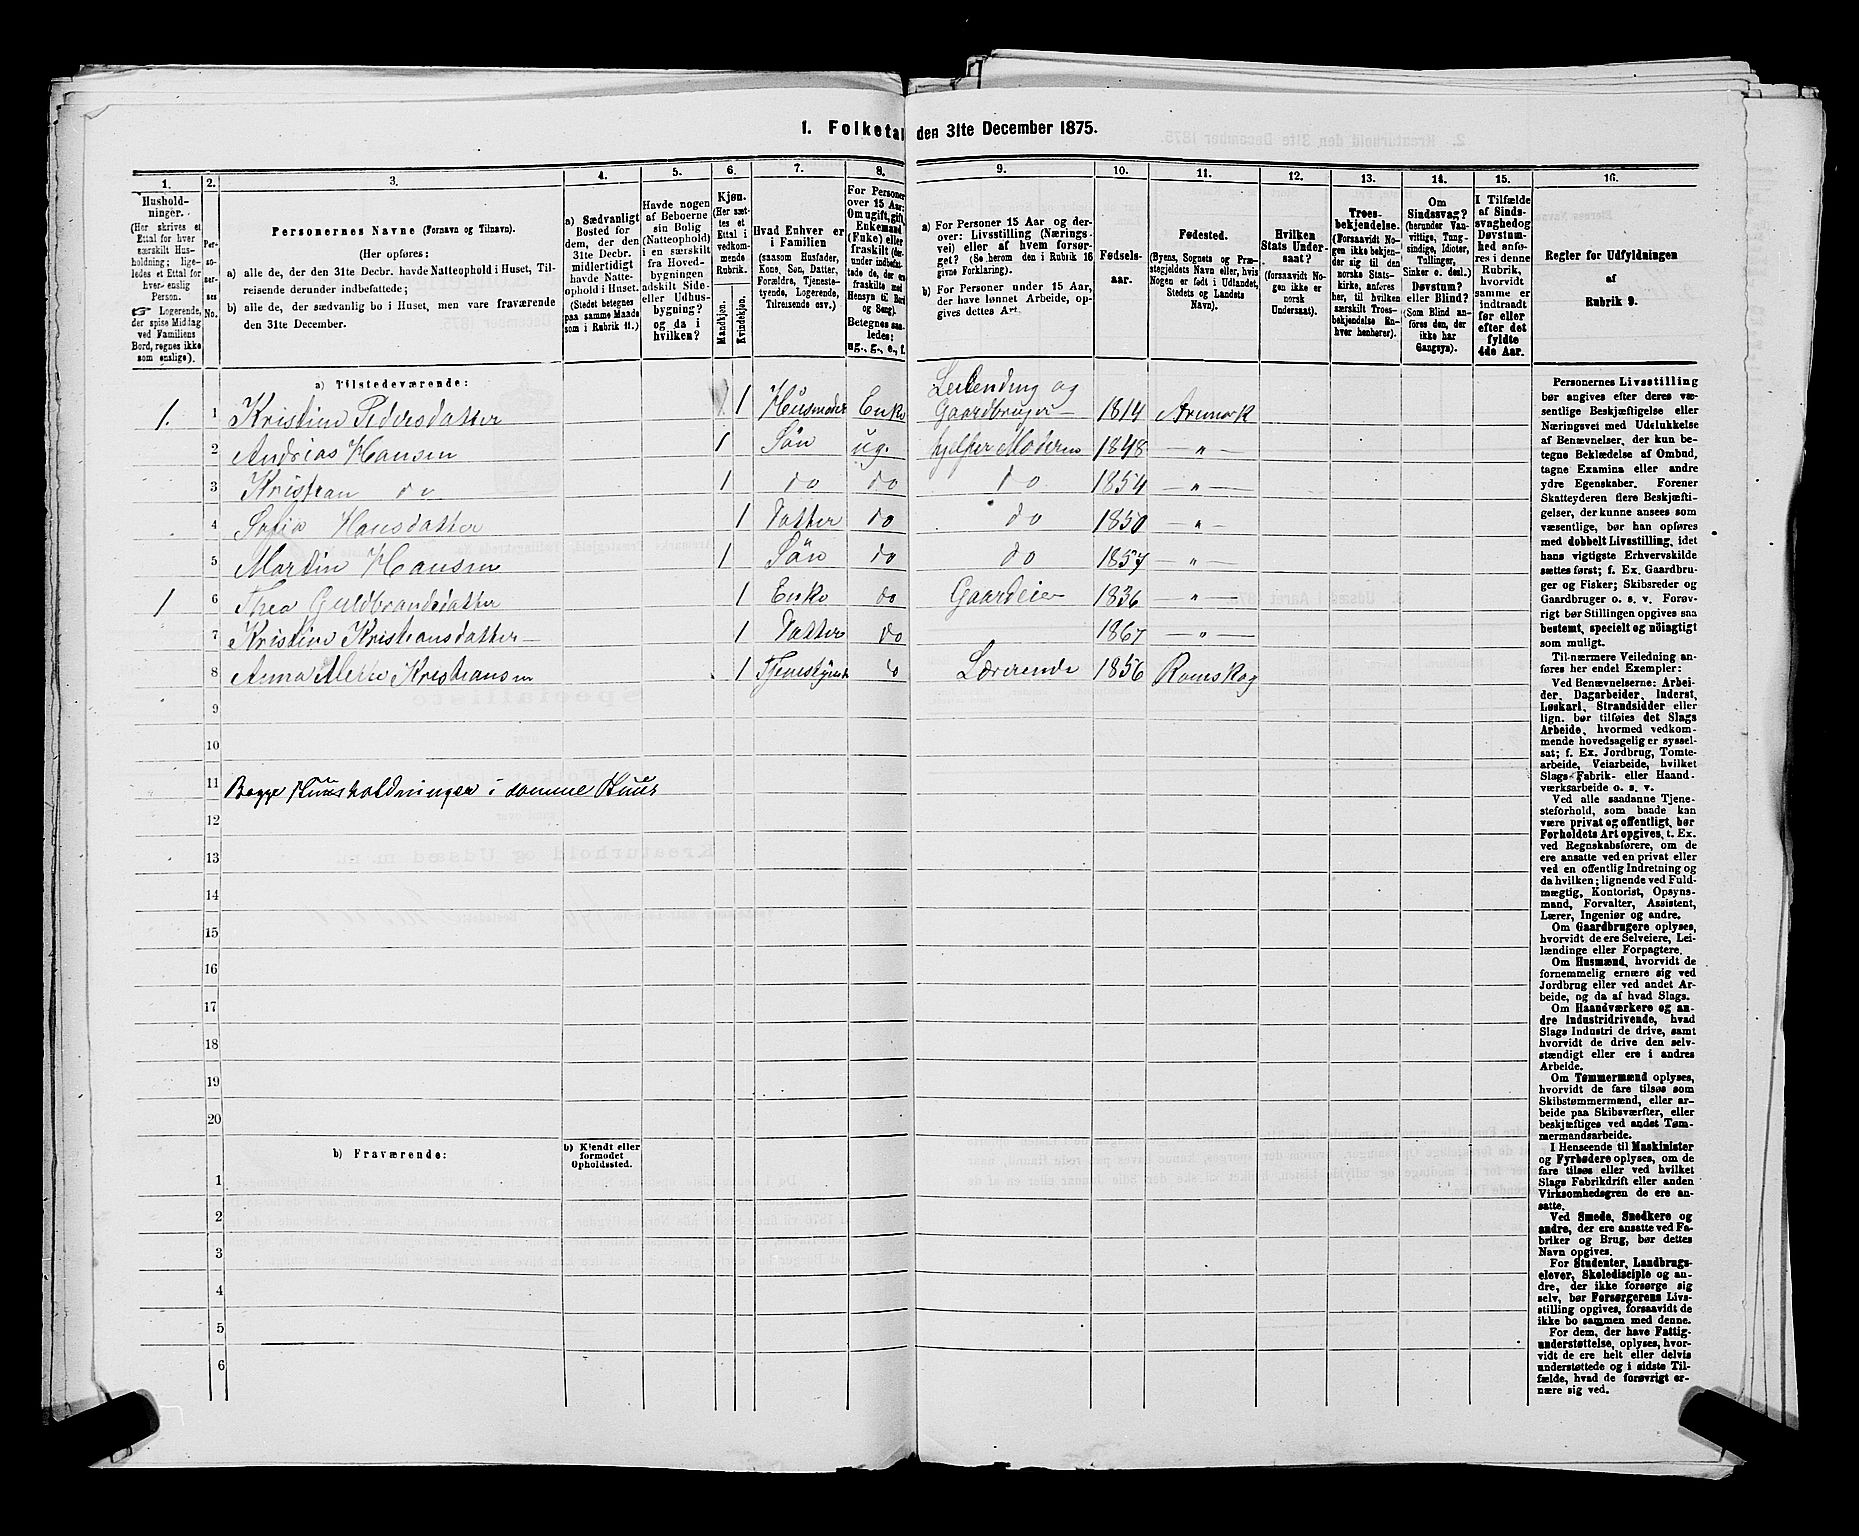 1. Folketal den 31te December 1875.
1. 2. 3. 4. 5. 6. 7. 8. 9. 10. 11. 12. 13. 14. 15. 16.
Hushold-
ninger.
(Her skrives et
Ettal for hver
særskilt Hus-
holdning; lige-
ledes et Ettal for
hver enslig
Person.
☞ Logerende,
der spise Middag
ved Familiens
Bord, regnes ikke
som enslige).
Per-
so-
ner-
nes
No.
Personernes Navne (Fornavn og Tilnavn).
(Her opføres:
a) alle de, der den 31te Decbr. havde Natteophold i Huset, Til-
reisende derunder indbefattede;
b) alle de, der sædvanlig bo i Huset, men vare fraværende
den 31te December.
a) Sædvanligt
Bosted for
dem, der den
31te Decbr.
midlertidigt
havde Natte-
ophold i Huset.
(Stedet betegnes
paa samme Maade
som i Rubrik 11.)
Havde nogen
af Beboerne
sin Bolig
(Natteophold)
i en særskilt
fra Hoved-
bygningen
adskilt Side-
eller Udhus-
bygning?
og da i
hvilken?
Kjøn.
(Her sæt-
tes et
Ettal i
vedkom-
mende
Rubrik.
Mandkjøn.
Kvindekjøn.
Hvad Enhver er
i Familien
(saasom Husfader,
Kone, Søn, Datter,
Forældre, Tjeneste-
tyende, Logerende,
Tilreisende osv.)
For Personer
over 15 Aar:
Om ugift, gift,
Enkemand
(Enke) eller
fraskilt (der-
under indbefat-
tede de, der ere
fraskilte med
Hensyn til Bord
og Seng).
Betegnes saa-
ledes:
ug., g., e., f.
a) For Personer 15 Aar og der-
over: Livsstilling (Nærings-
vei) eller af hvem forsør-
get? (Se herom den i Rubrik 16
givne Forklaring).
b) For Personer under 15 Aar,
der have lønnet Arbeide, op-
gives dettes Art.
Fødsels-
aar.
Fødested.
(Byens, Sognets og Præ-
stegjeldets Navn eller, hvis
Nogen er født i Udlandet,
Stedets og Landets
Navn).
Hvilken
Stats Under-
saat?
(forsaavidt No-
gen ikke er
norsk
Undersaat).
Troes-
bekjendelse.
(Forsaavidt No-
gen ikke bekjen-
der sig til den
norske Stats-
kirke, anføres
her, til hvilken
særskilt Troes-
bekjendelse En-
hver henhører).
Om
Sindssvag?
(herunder Van-
vittige, Tung-
sindige, Idioter,
Tullinger,
Sinker o. desl.)
Døvstum?
eller Blind?
(Som Blind an-
føres den, der
ikke har
Gangsyn).
I Tilfælde
af Sinds-
svaghed og
Døvstum-
hed anfø-
res i denne
Rubrik,
hvorvidt
samme er
indtraadt
før eller
efter det
fyldte
4de Aar.
Regler for Udfyldningen
af
Rubrik 9.
a) Tilstedeværende:
1. 1 Kristine Pedersdatter 1 Husmoder Enke Leilending og Gaardbruger 1814 Aremark
2 Andrias Hansen 1 Søn ug. hjelper Moderen 1848 — " —
3 Kristian do 1 do do do 1854 — " —
4 Sofie Hansdatter 1 Datter do do 1850 — " —
5 Martin Hansen 1 Søn do do 1857 — " —
1 6 Thea Guldbrandsdatter 1 Enke do Gaardeier 1836 — " —
7 Kristine Kristiansdatter 1 Datter do 1867 — " —
8 Anna Kristiansen 1 Lærerinde 1856 Romskog
9
10
11 Begge Huusholdninger i samme Huus
12
13
14
15
16
17
18
19
20
b) Fraværende:
b) Kjendt eller
formodet
Opholdssted.
1
2
3
4
5
6
Personernes Livsstilling
bør angives efter deres væ-
sentlige Beskjæftigelse eller
Næringsvei med Udelukkelse
af Benævnelser, der kun be-
tegne Beklædelse af Ombud,
tagne Examina eller andre
ydre Egenskaber. Forener
Skatteyderen flere Beskjæfti-
gelser, der kunne ansees som
væsentlige, bør han opføres
med dobbelt Livsstilling, idet
hans vigtigste Erhvervskilde
sættes først; f. Ex. Gaardbru-
ger og Fisker; Skibsreder og
Gaardbruger o. s. v. Forøv-
rigt bør Stillingen opgives saa
bestemt, specielt og nöiagtigt
som muligt.
Til nærmere Veiledning an-
føres her endel Exempler:
Ved Benævnelserne: Arbei-
der, Dagarbeider, Inderst,
Løskarl, Strandsidder eller
lign. bør tilføies det Slags
Arbeide, hvormed vedkom-
mende hovedsagelig er syssel-
sat; f. Ex. Jordbrug, Tomte-
arbeide, Veiarbeide, hvilket
Slags Fabrik- eller Haand-
værksarbeide o. s. v.
Ved alle saadanne Tjene-
steforhold, som baade kan
være privat og offentligt, bør
Forholdets Art opgives, t. Ex.
ved Regnskabsførere, om de
ere ansatte ved en privat eller
ved en offentlig Indretning og
da hvilken; lignende ved Fuld-
mægtig, Kontorist, Opsyns-
mand, Forvalter, Assistent,
Lærer, Ingeniør og andre.
Om Gaardbrugere oplyses,
hvorvidt de ere Selveiere, Lei-
lændinge eller Forpagtere.
Om Husmænd, hvorvidt de
fornemmelig ernære sig ved
Jordbrug eller ved andet Ar-
beide, og da af hvad Slags.
Om Haandværkere og an-
dre Industridrivende, hvad
Slags Industri de drive, samt
hvorvidt de drive den selv-
stændigt eller ere i andres
Arbeide.
Om Tømmermænd oplyses,
hvorvidt de fare tilsøs som
Skibstømmermænd, eller ar-
beide paa Skibsværfter, eller
beskjæftiges ved andet Tøm-
mermandsarbeide.
I Henseende til Maskinister
og Fyrbødere oplyses, om de
fare tilsøs eller ved hvilket
Slags Fabrikdrift eller anden
Virksomhedsgren de ere an-
satte.
Ved Smede, Snedkere og
andre, der ere ansatte ved Fa-
briker og Brug, bør dettes
Navn opgives.
For Studenter, Landbrugs-
elever, Skoledisciple og an-
dre, der ikke forsørge sig
selv, bør Forsørgerens Livs-
stilling opgives, forsaavidt de
ikke bo sammen med denne.
For dem, der have Fattig-
understøttelse, oplyses, hvor-
vidt de ere helt eller delvis
understøttede og i sidste Til-
fælde, hvad de forøvrigt er-
nære sig ved.